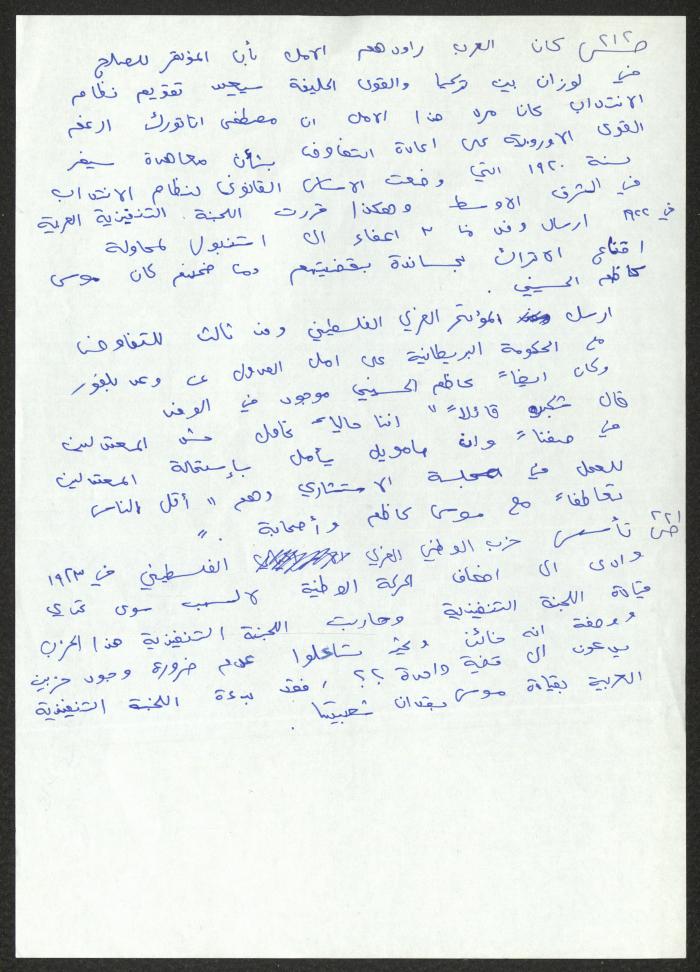 ص ٢١٢ كان العرب راودهم الامل بأن المؤتمر للصلح
في لوزان بين تركيا والقوى الحليفة سيعيد تقويم نظام
الانتداب كان مرد هذا الامل ان مصطفى اتاتورك ارغم
القوى الاوروبية على اعادة التفاوض بشأن معاهدة سيفر
سنة ١٩٢٠ التي وضعت الاساس القانوني لنظام الانتداب
في الشرق الاوسط وهكذا قررت اللجنة التنفيذية العربية
في ١٩٢٢ ارسال وفد ٣ اعضاء الى استنبول لمحاولة
اقناع الاتراك بمساندة بقضيتهم وما ضمنهم كان موسى
كاظم الحسيني .
ارسل المؤتمر العربي الفلسطيني وفد ثالث للتفاوض
مع الحكومة البريطانية على امل العدول عن وعد بلفور
وكان ايضاً كاظم الحسيني موجود في الوفد
قال قائلاً " اننا حالياً نحاول المعتدلين
في صفنا" وان صامويل يأمل بإستمالة المعتدلين
للعمل في مجلسة الاستشاري وهم " أقل الناس
تعاطفاً مع موسى كاظم وأصحابة . "
ص ٢٢١ تأسس حزب الوطني العربي الفلسطيني في ١٩٢٣
وادى الى اضعاف الحركة الوطنية لا لسبب سوى تحدي
قيادة اللجنة التنفيذية وحاربت اللجنة التنفيذية هذا الحزب
ووصفة انه خائن تسائلوا عدم ضرورة وجود حزبين
يدعون الى قضية واحدة ؟؟ ، فقد بدءة اللجنة التنفيذية
العربية بقيادة موسى بفقدان شعبيتها .